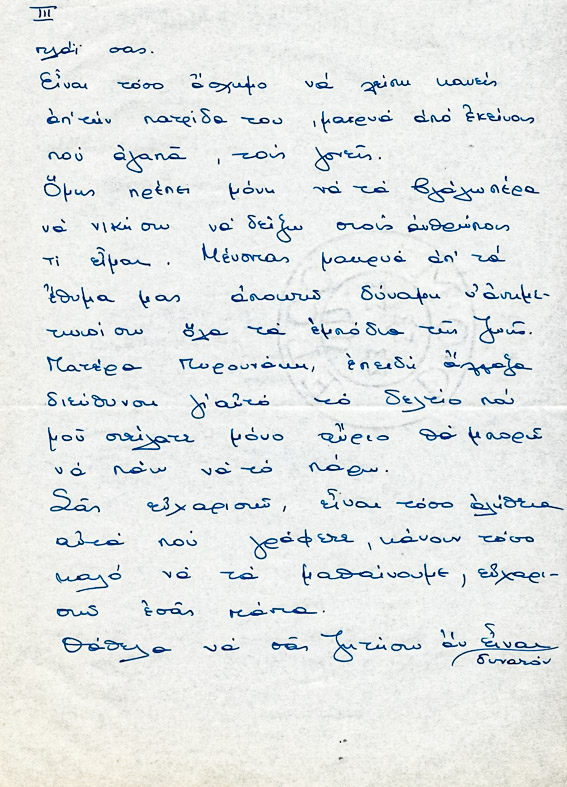 III
πλάϊ σας.
Εἶναι τόσο ἄσχημο νά λείπη κανείς
ἀπ' τήν πατρίδα του, μακρυά ἀπό ἐκείνους
πού ἀγαπᾶ, τούς γονεῖς.
Ὅμως πρέπει μόνη νά τά βγάλω πέρα
νά νικήσω νά δείξω στούς ἀνθρώπους
τι εἶμαι. Μένοντας μακρυά ἀπ' τά
ἔθιμα μας ἀποκτῶ δύναμη ν' ἀντιμε-
τωπίσω ὅλα τά ἐμπόδια τῆς ζωῆς.
Πατέρα Πυρουνάκη, ἐπειδή ἄλλαξα
διεύθυνση γι' αὐτό τό δελτίο πού
μοῦ στείλατε μόνο αὔριο θά μπορῶ
νά πάω νά τό πάρω.
Σᾶς εὐχαριστῶ, εἶναι τόσο ἀλήθεια
αὐτά πού γράφετε, κάνουν τόσο
καλό νά τά μαθαίνουμε, εὐχαρι-
στῶ ἐσᾶς πάτα.
Θάθελα νά σᾶς ζητήσω ἄν εἶναι
δυνατόν